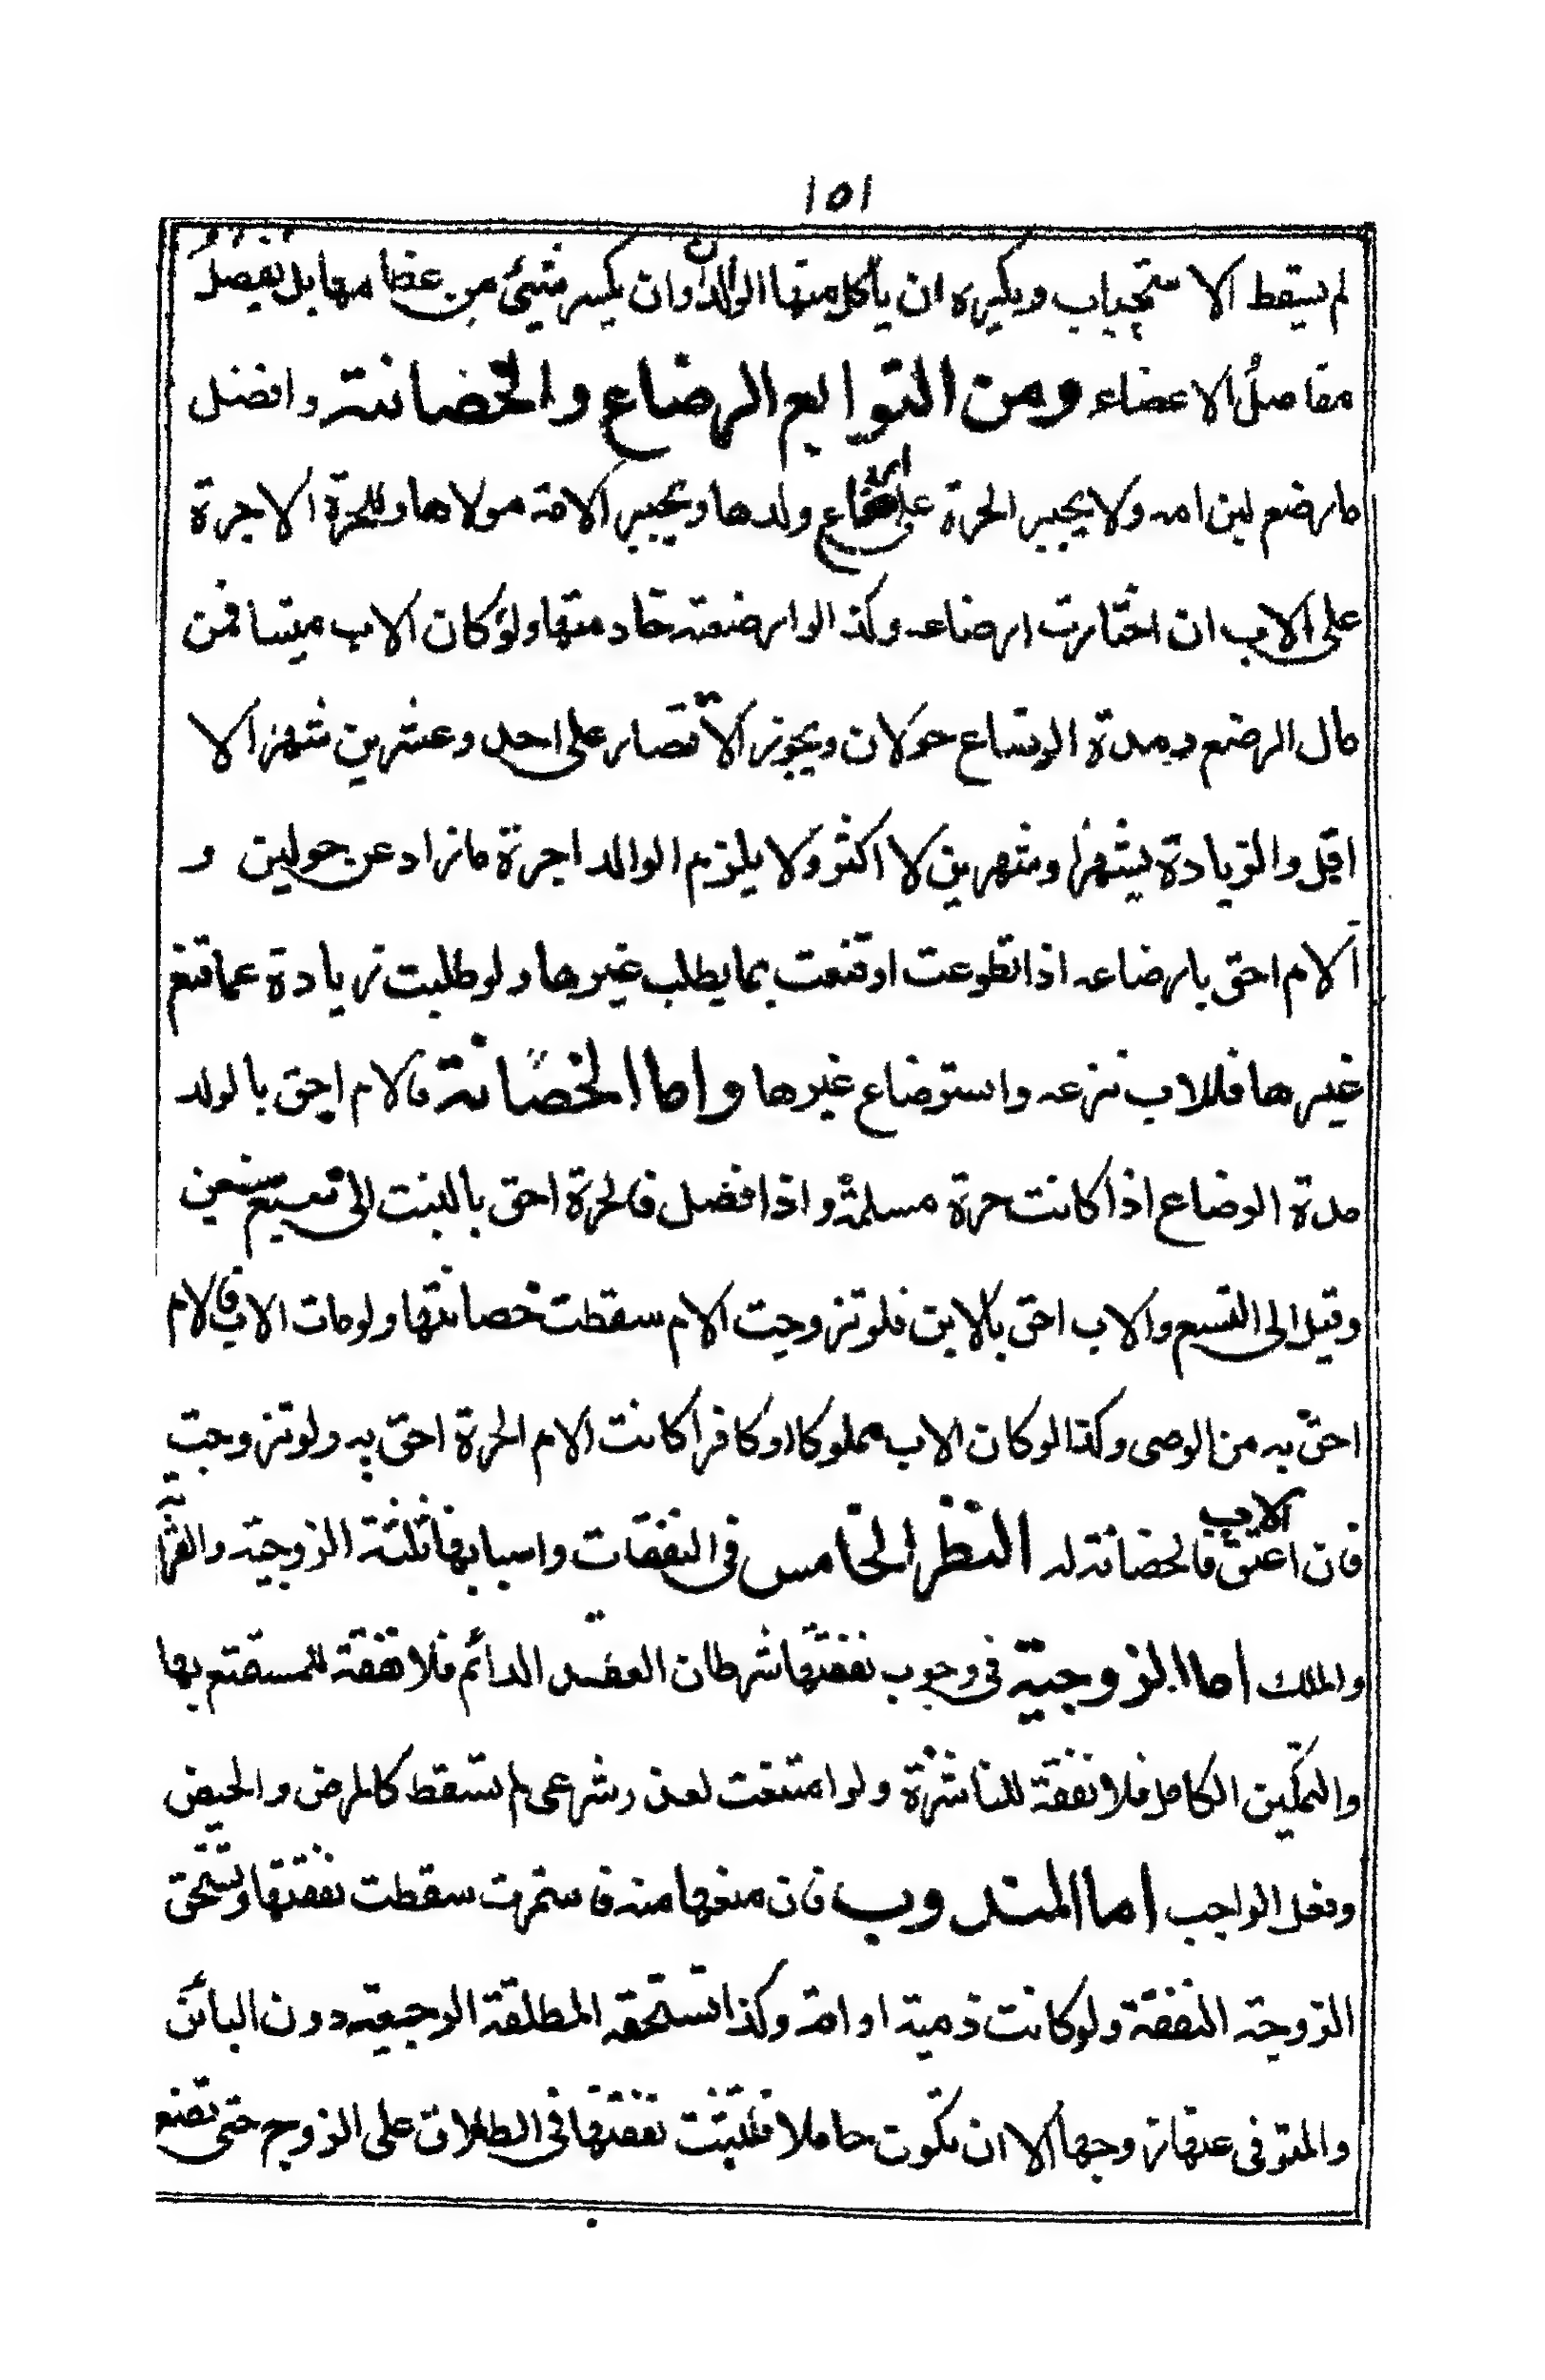 ١٥١
لم يسقط الاستحباب ويكره ان ياكل منها الوالدان وان يكسر شيئ من عظامها بل يفصل
مفاصل الاعضاء ومن التوابع الرضاع والحضانة وافضل
مارضع لبن امه ولا يجبر الحرة على ارضاع ولدها ويجبر الامة مولاها وللحرة الاجرة
على الاب ان اختارت ارضاعه وكذا لو ارضعته خادمتها ولو كان الاب ميتا فمن
مال الرضيع ومدة الرضاع حولان ويجوز الاقتصار على احد وعشرين شهرا لا
اقل والزيادة بشهر او شهرين لا اكثر ولا يلزم الوالد اجرة مازاد عن حولين و
الام احق بارضاعه اذا تطوعت او قنعت بما يطلب غيرها ولو طلبت زيادة عما قنع
غيرها فللاب نزعه واسترضاع غيرها واما الحضانة فالام احق بالولد
مدة الرضاع اذا كانت حرة مسلمة واذا فصل فالحرة احق بالبنت الى سبع سنين
وقيل الى التسع والاب احق بالابن فلو تزوجت الام سقطت حضانتها ولو مات الاب فالام
احق به من الوصى وكذا لو كان الاب مملوكا او كافرا كانت الام الحرة احق به ولو تزوجت
فان اعتق الاب فالحضانة له النظر الخامس فى النفقات واسبابها ثلثة الزوجية والقرابة
والملك اما الزوجية فى وجوب نفقتها شرطان العقد الدائم فلا نفقة للمستمتع بها
والتمكين الكامل فلا نفقة للناشزة ولو امتنعت لعذر شرعى لم تسقط كالمرض والحيض
وفعل الواجب اما المندوب فان منعها منه فاستمرت سقطت نفقتها وتستحق
الزوجة النفقة ولو كانت ذمية او امة وكذا تستحقه المطلقة الرجعية دون البائن
والمتوفى عنها زوجها الا ان تكون حاملا فتثبت نفقتها فى الطلاق على الزوج حتى تضع